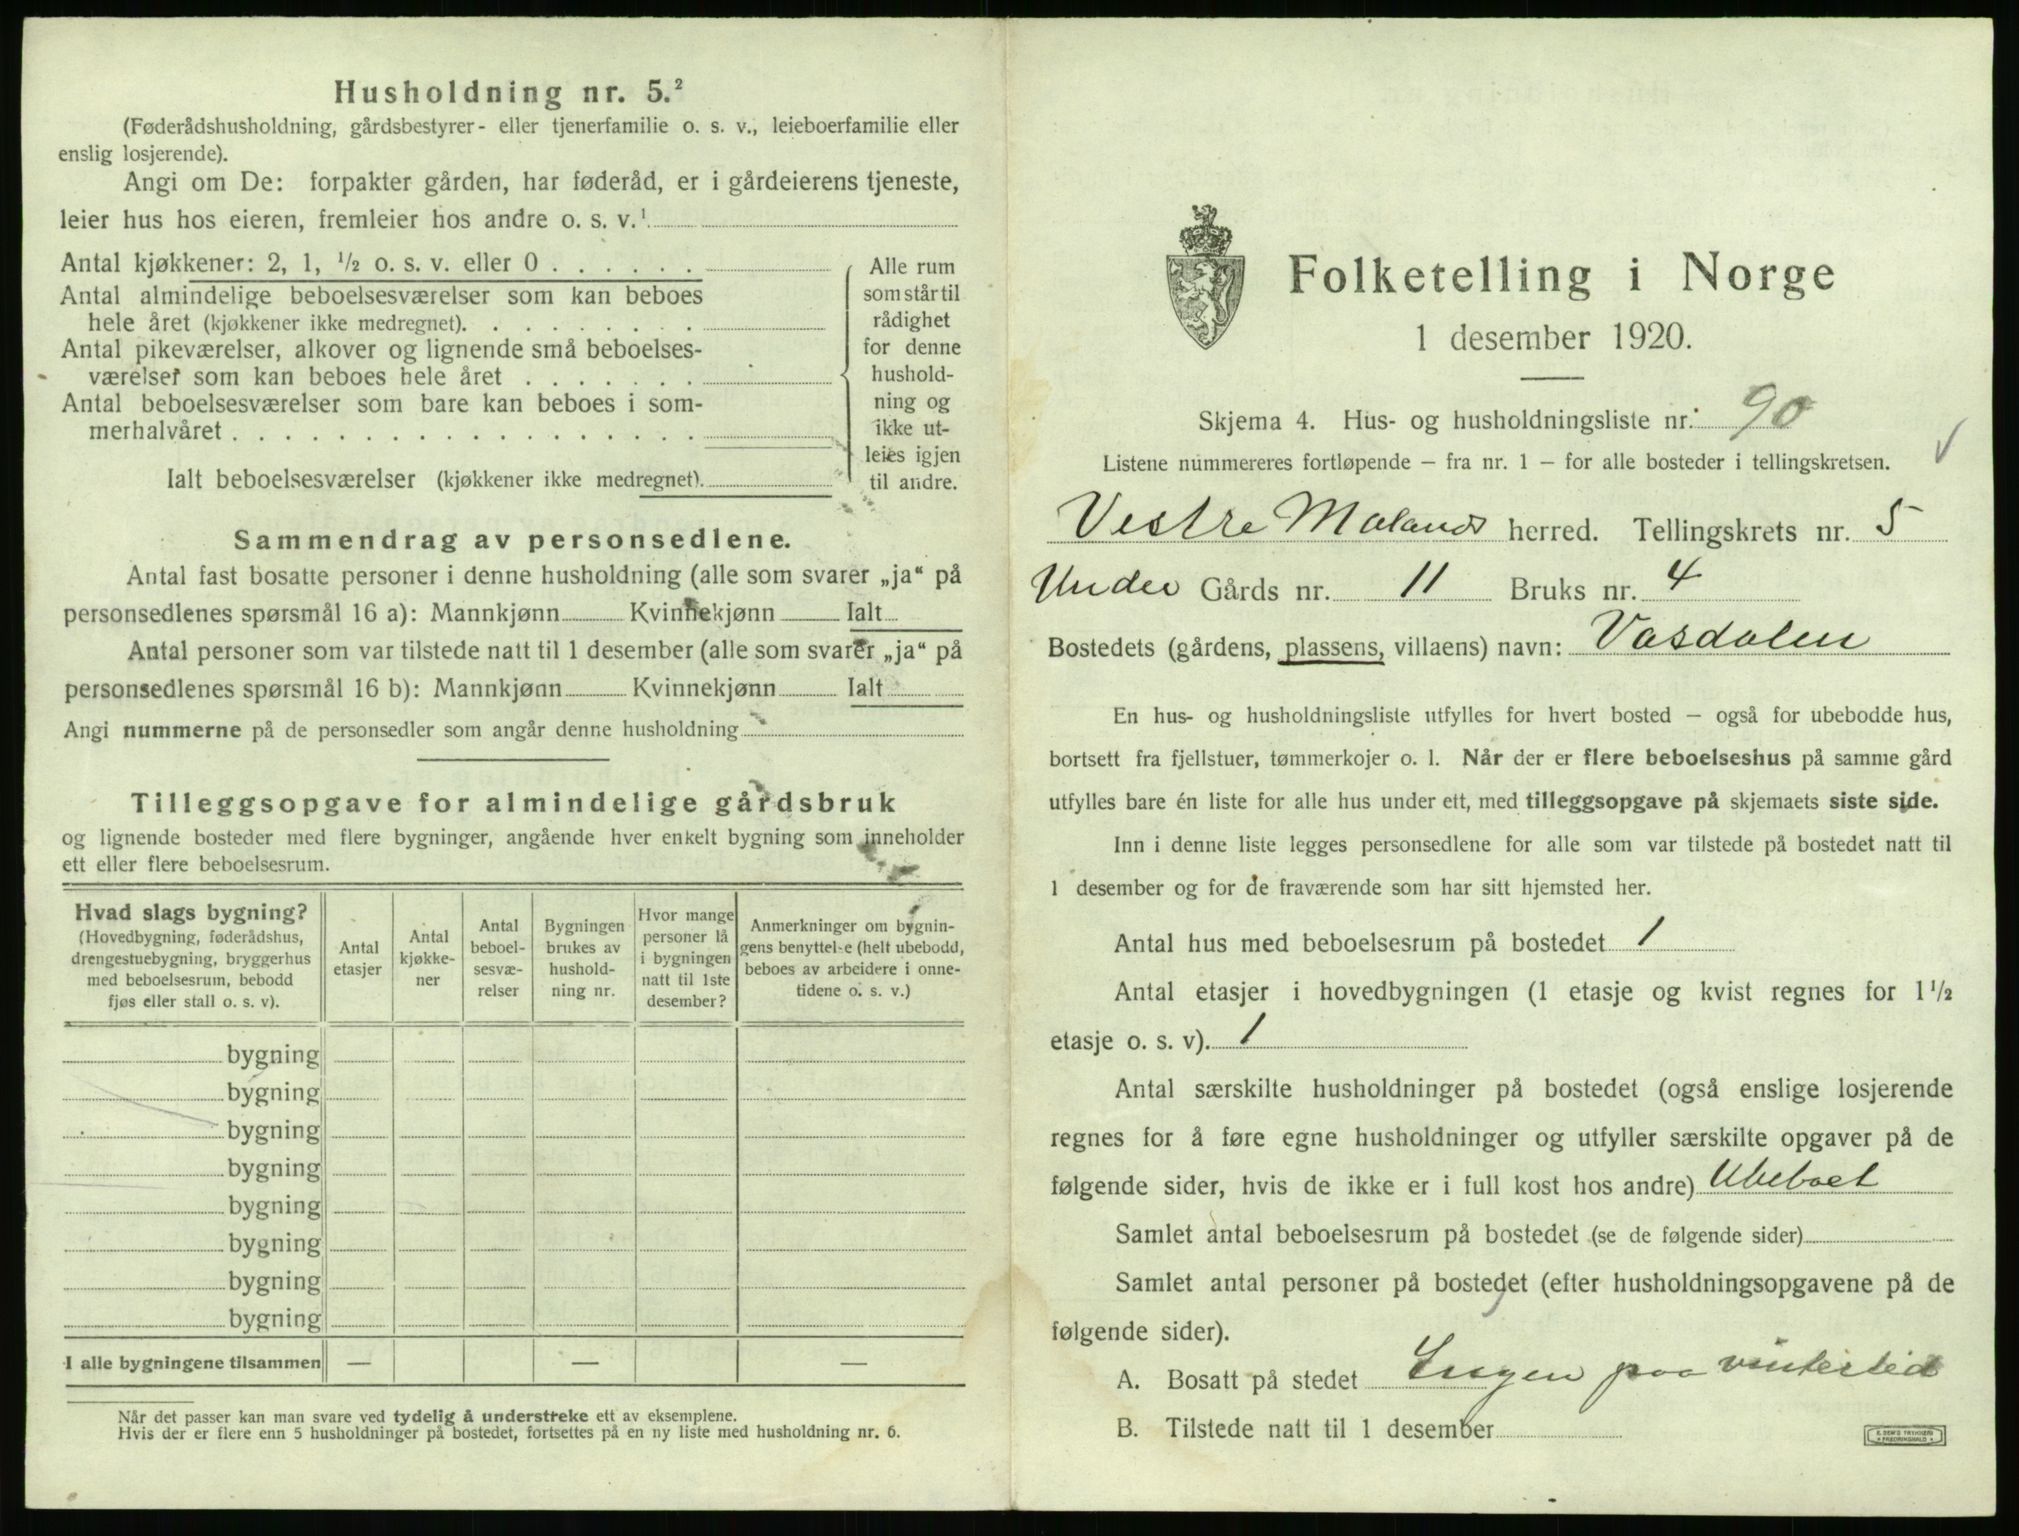 Husholdning nr. 5.²
(Føderådshusholdning, gårdsbestyrer- eller tjenerfamilie o. s. v., leieboerfamilie eller
enslig losjerende).
Angi om De: forpakter gården, har føderåd, er i gårdeierens tjeneste,
leier hus hos eieren, fremleier hos andre o. s. v.¹
Antal kjøkkener: 2, 1, ½ o. s. v. eller 0 . . . . . .
Antal almindelige beboelsesværelser som kan beboes
hele året (kjøkkener ikke medregnet). . . . . . . . .
Antal pikeværelser, alkover og lignende små beboelses-
værelser som kan beboes hele året . . . . . . .
Antal beboelsesværelser som bare kan beboes i som-
merhalvåret . . . . . . . . . . . . . . . . .
Ialt beboelsesværelser (kjøkkener ikke medregnet).
Alle rum
som står til
rådighet
for denne
hushold-
ning og
ikke ut-
leies igjen
til andre.
Sammendrag av personsedlene.
Antal fast bosatte personer i denne husholdning (alle som svarer „ja“ på
personsedlenes spørsmål 16 a): Mannkjønn Kvinnekjønn Ialt
Antal personer som var tilstede natt til 1 desember (alle som svarer „ja“ på
personsedlenes spørsmål 16 b): Mannkjønn Kvinnekjønn Ialt
Angi nummerne på de personsedler som angår denne husholdning
Tilleggsopgave for almindelige gårdsbruk
og lignende bosteder med flere bygninger, angående hver enkelt bygning som inneholder
ett eller flere beboelsesrum.
Hvad slags bygning?
(Hovedbygning, føderådshus,
drengestuebygning, bryggerhus
med beboelsesrum, bebodd
fjøs eller stall o. s. v).
Antal
etasjer
Antal
kjøkke-
ner
Antal
beboel-
sesvæ-
relser
Bygningen
brukes av
hushold-
ning nr.
Hvor mange
personer lå
i bygningen
natt til 1ste
desember?
Anmerkninger om bygnin-
gens benyttelse (helt ubebodd,
beboes av arbeidere i onne-
tidene o. s. v.)
bygning
bygning
bygning
bygning
bygning
bygning
bygning
bygning
I alle bygningene tilsammen — — —
Når det passer kan man svare ved tydelig å understreke ett av eksemplene.
Hvis der er flere enn 5 husholdninger på bostedet, fortsettes på en ny liste med husholdning nr. 6.
Folketelling i Norge
1 desember 1920.
Skjema 4. Hus- og husholdningsliste nr. 90
Listene nummereres fortløpende – fra nr. 1 – for alle bosteder i tellingskretsen.
Vestre Molands herred. Tellingskrets nr. 5
Under Gårds nr. 11 Bruks nr. 4
Bostedets (gårdens, plassens, villaens) navn: Vasdalen
En hus- og husholdningsliste utfylles for hvert bosted – også for ubebodde hus,
bortsett fra fjellstuer, tømmerkojer o. l. Når der er flere beboelseshus på samme gård
utfylles bare én liste for alle hus under ett, med tilleggsopgave på skjemaets siste side.
Inn i denne liste legges personsedlene for alle som var tilstede på bostedet natt til
1 desember og for de fraværende som har sitt hjemsted her.
Antal hus med beboelsesrum på bostedet 1
Antal etasjer i hovedbygningen (1 etasje og kvist regnes for 1½
etasje o. s. v). 1
Antal særskilte husholdninger på bostedet (også enslige losjerende
regnes for å føre egne husholdninger og utfyller særskilte opgaver på de
følgende sider, hvis de ikke er i full kost hos andre) Ubeboet
Samlet antal beboelsesrum på bostedet (se de følgende sider)
Samlet antal personer på bostedet (efter husholdningsopgavene på de
følgende sider).
A. Bosatt på stedet Ingen paa vintertid
B. Tilstede natt til 1 desember
E. SEM'S TRYKKERI
FREDRIKSHALD